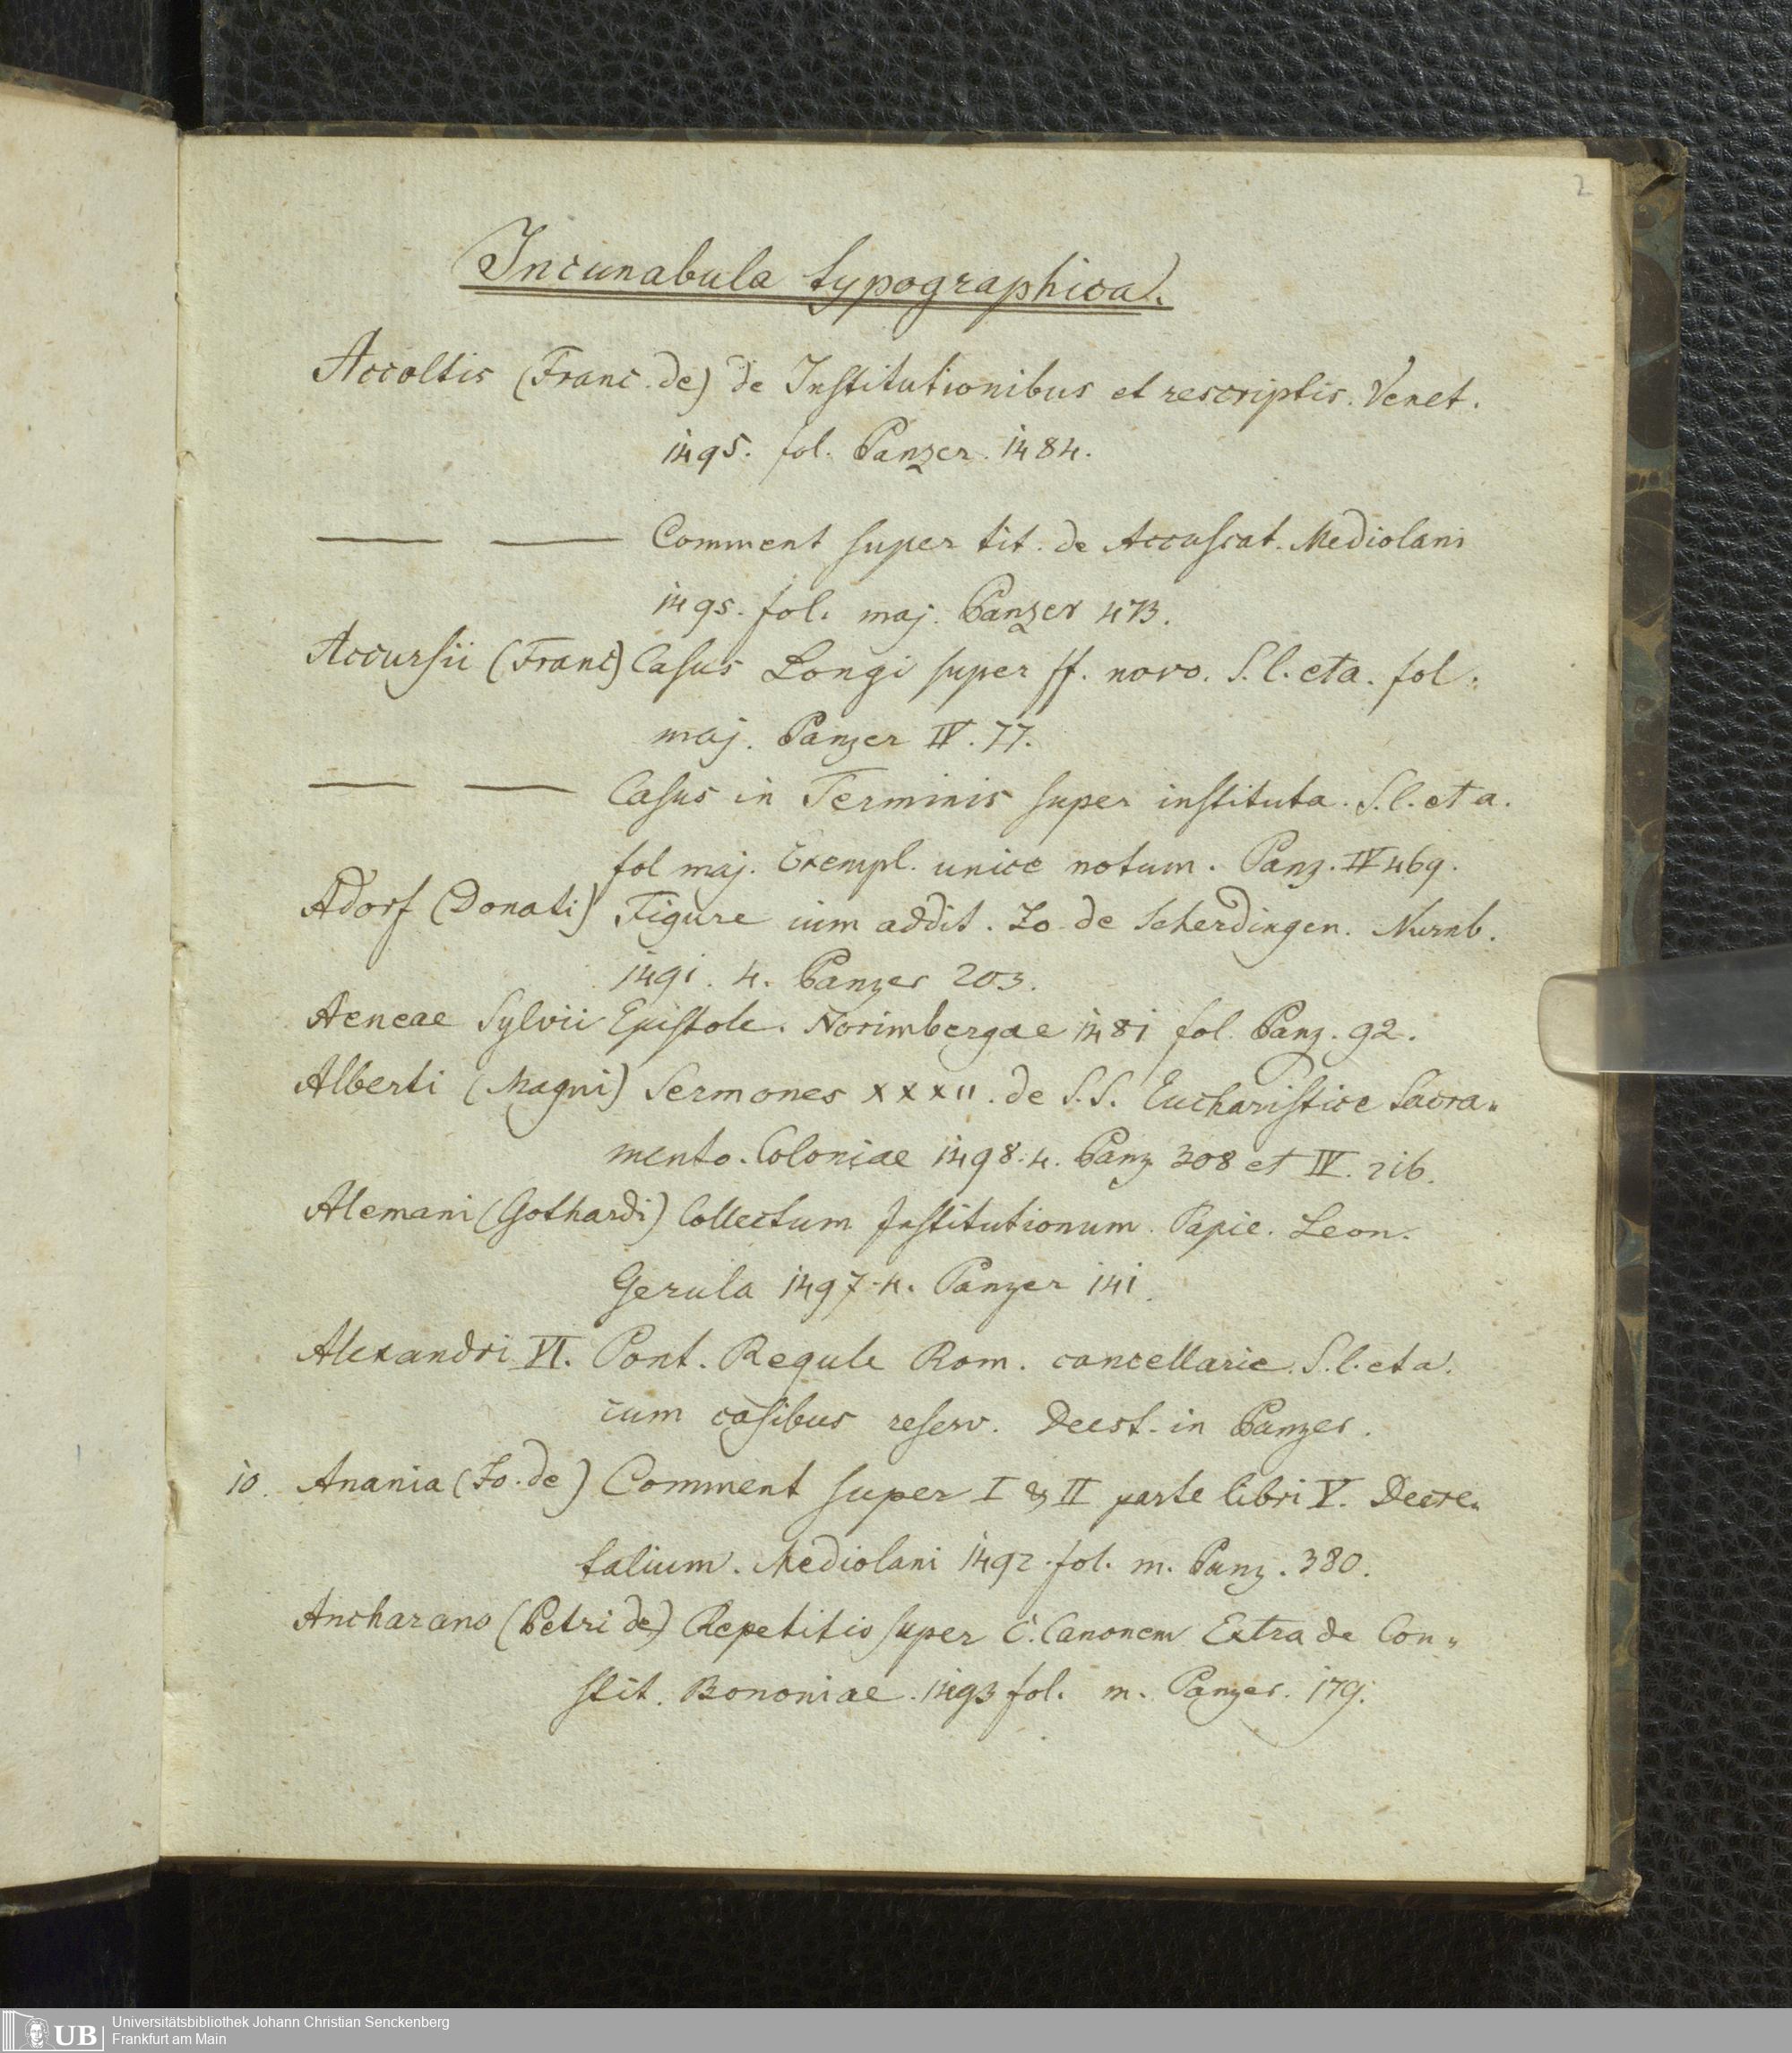 2
Incunabula typographica.
Accoltis (Franc. de) de Institutionibus et rescriptis. Venet.
1495. fol. Panzer. 1484.
— — Comment super tit. de Accusat. Mediolani
1495. fol. maj. Panzer 473.
Accursii (Franc) Casus Longi super ff. novo. S. l. et a. fol.
maj. Panzer IV. 77.
— — Casus in Terminis super instituta. S. l. et a.
fol maj. Exempl. unice notum. Panz. IV 469.
Adorf (Donati) Figure cum addit. Jo de Scherdingen. Nurnb.
1491. 4. Panzer 203.
Aeneae Sylvii Epistole. Norimbergae 1481 fol. Panz. 92.
Alberti (Magni) Sermones XXXII. de S. S. Eucharistice Sacra„
mento. Coloniae 1498. 4. Panz 308 et IV. 216.
Alemani (Gothardi) Collectum Institutionum. Papie. Leon.
Gerula 1497. 4. Panzer 141.
Alexandri VI. Pont. Regule Rom. cancellarie. S. l. et a.
cum casibus reserv. Deest. in Panzer.
10. Anania (Jo. de) Comment super I & II parte libri V. Decre„
talium. Mediolani 1492. fol. m. Panz. 380.
Ancharano (Petri de) Repetitio super C. Canonem Extra de Con„
stit. Bononiae. 1493 fol. m. Panzer. 179.
UB
Universitätsbibliothek Johann Christian Senckenberg
Frankfurt am Main